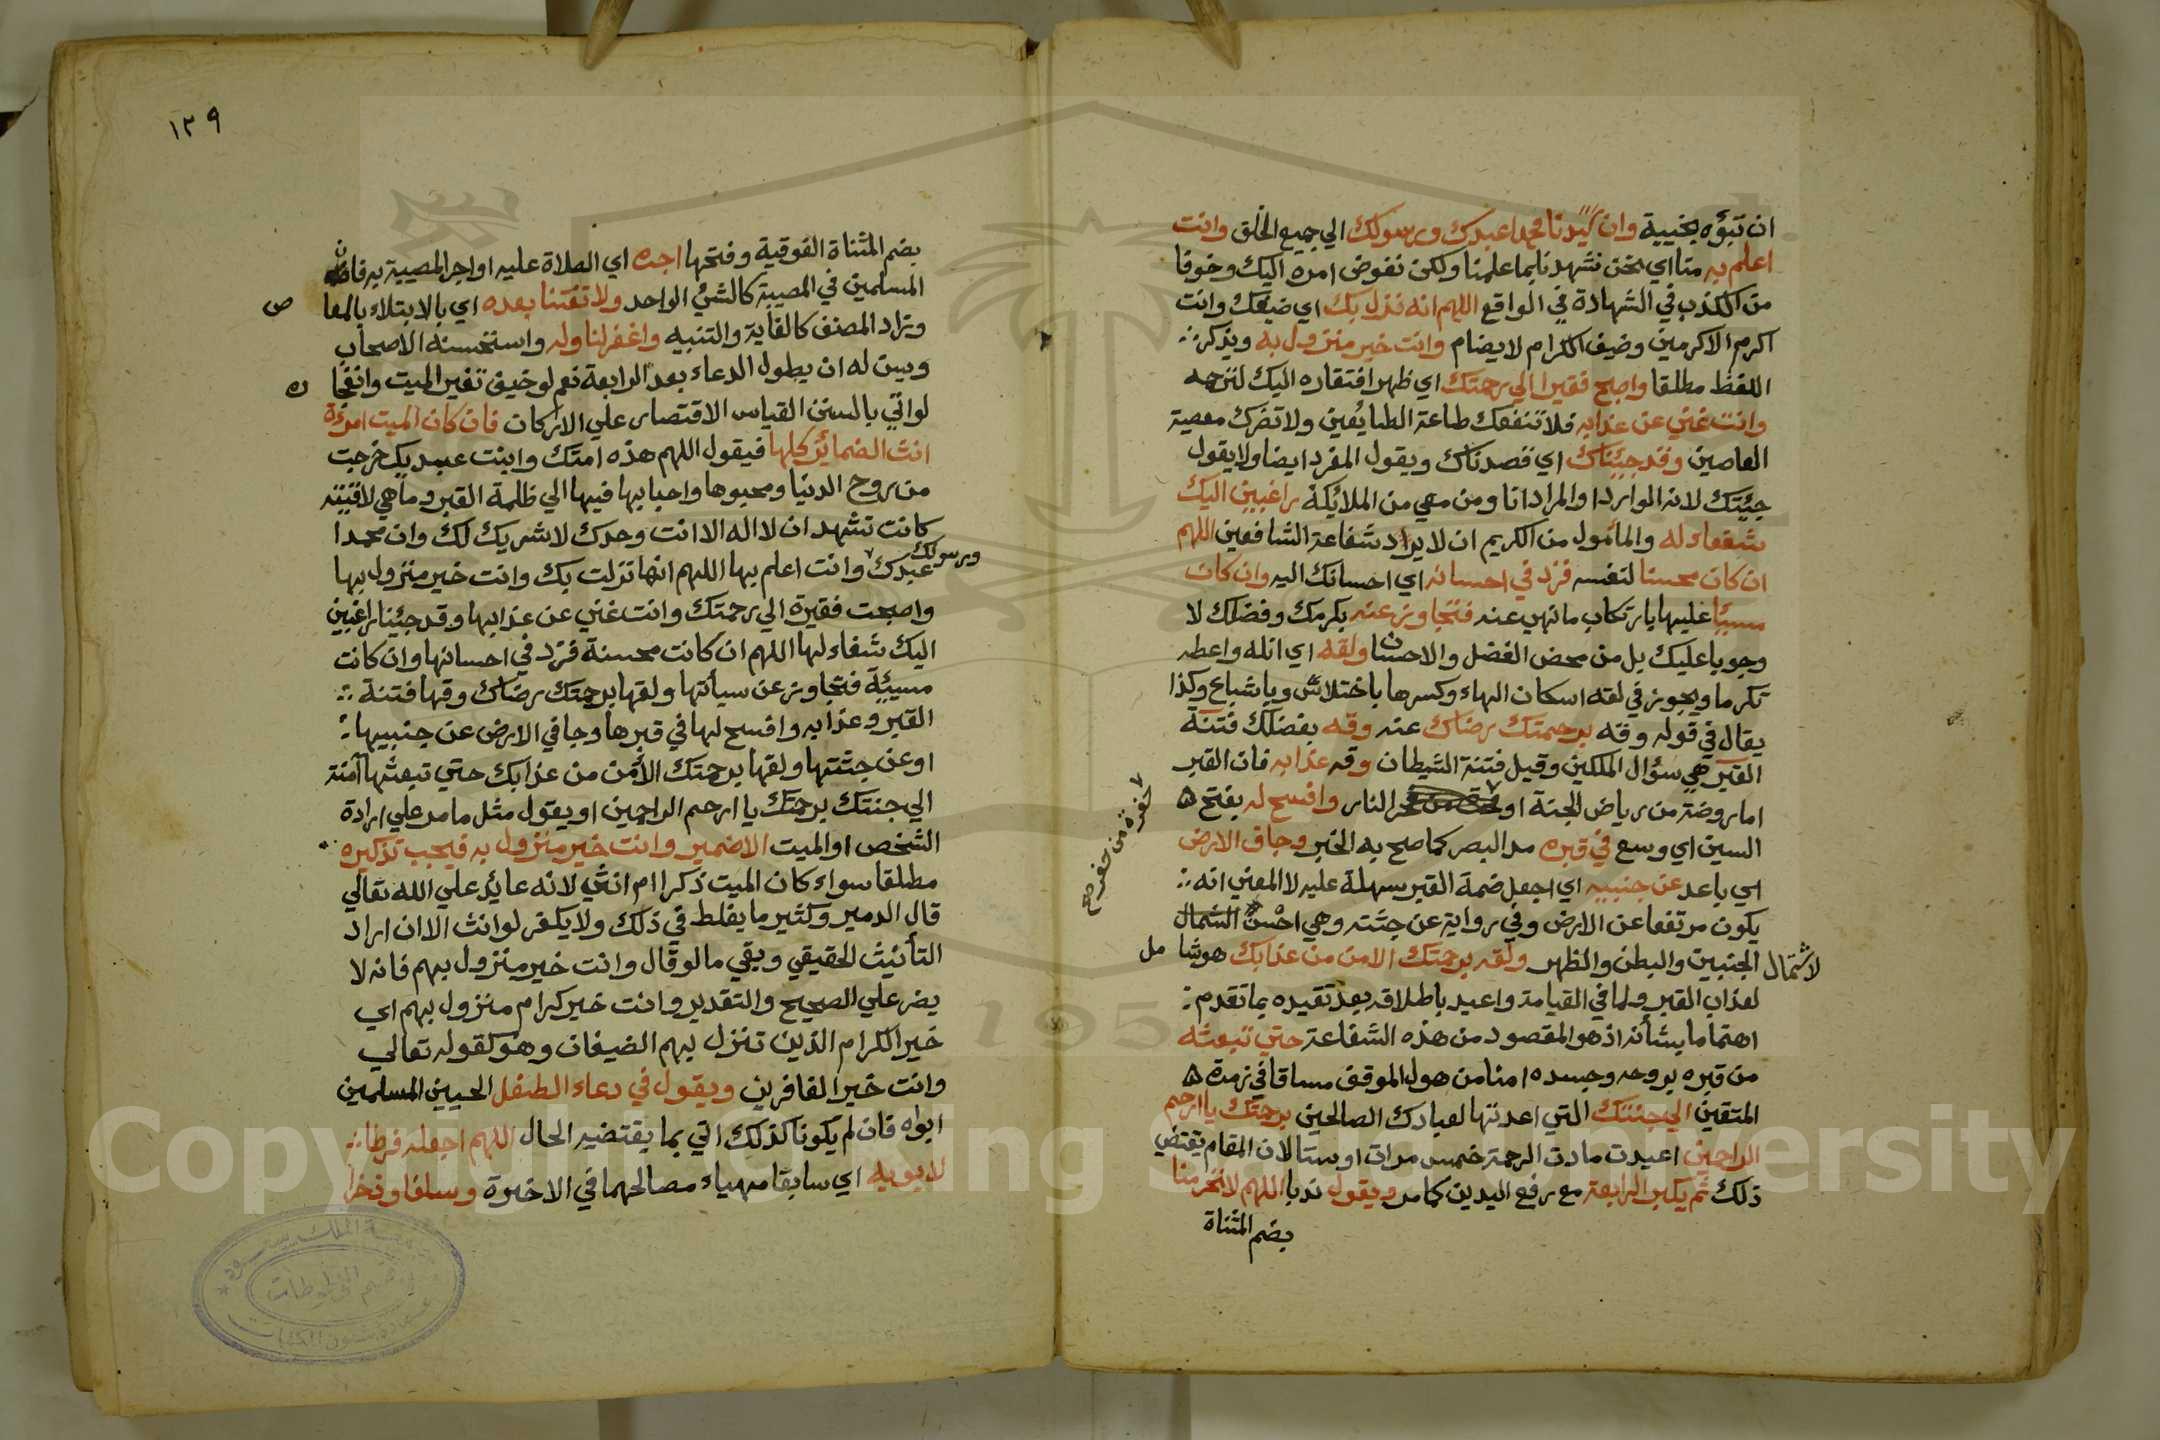 ان تبؤه بخيبة وان سيدنا محمدا عبدك ورسولك الي جميع الخلق وانت
اعلم به منا اي نحن نشهدنا بما علمنا ولكن نفوض امره اليك وخوفا
من الكذب في الشهادة في الواقع اللهم انه نزل بك اي ضيفك وانت
اكرم الاكرمين وضيف الكرام لا يضام وانت خير منزول به ويذكر
اللفظ مطلقا واصبح فقيرا الي رحمتك اي ظهر افتقاره اليك
وانت غني عن عذابه فلا تنفعك طاعة الطايعين ولا تضرك معصية
العاصين وقد جيناك اي قصدناك ويقول المفرد ايضا ولا يقول
جيتك لانه الوارد او المراد انا ومن معي من الملايكة راغبين اليك
شفعاء له والمأمول من الكريم ان لا يرد شفاعة الشافعين اللهم
ان كان محسنا لنفسه فزد في احسانه اي احسانك اليه وان كان
مسيا عليها بارتكاب ما نهي عنه فتجاوز عنه بكرمك وفضلك لا
وجوبا عليك بل من محض الفضل والاحسان ولقه اي انله واعطه
تكرما ويجوز في لقه اسكان الهاء وكسرها باختلاس وباشباع وكذا
يقال في قوله وقه برحمتك رضاك عنه وقه بفضلك فتنة
القبر هي سؤال الملكين وقيل فتنة الشيطان وقه عذابه فان القبر
اما روضة من رياض الجنة او النار وافسح له بفتح
حفرة من حفر صح
السين اي وسع في قبره مد البصر كما صح به الخبر وجاف الارض
اي باعد عن جنبيه اي اجعل ضمة القبر سهلة عليه لا المعني انه
يكون مرتفعا عن الارض وفي رواية عن جثته وهي احسن الشمال
لاشتمال الجنبين والبطن والظهر ولقه برحمتك الامن من عذابك هو شا مل
لعذاب القبر ولما في القيامة واعيد باطلاقه بعد تقيده بما تقدم
اهتماما بشأنه اذ هو المقصود من هذه الشفاعة حتي تبعثه
من قبره بروحه وجسده امنا من هول الموقف مساقا في زمرة
المتقين الي جنتك التي اعدتها لعبادك الصالحين برحمتك يا ارحم
الراحمين اعيدت مادت الرحمة خمس مرات او ستا لان المقام يقتضي
ذلك ثم يكبر الرابعة مع رفع اليدين كما مر ويقول ندبا اللهم لا تحرمنا
بضم المثناة
١٣٩
بضم المثناة الفوقية وفتحها اجره اي الصلاة عليه او اجر المصيبة به فان
المسلمين في المصيبة كالشئ الواحد ولا تفتنا بعده اي بالابتلاء بالمعا ص
وزاد المصنف كالغاية والتنبيه واغفر لنا وله واستحسنه الاصحاب
ويسن له ان يطول الدعاء بعد الرابعة نعم لو خيف تغير الميت وانفجا ره
لو اتي بالسنن القياس الاقتصار علي الاركان فان كان الميت امرءة
انث الضماير كلها فيقول اللهم هذه امتك وابنت عبديك خرجت
من روح الدنيا ومحبوها واحبابها فيها الي ظلمة القبر وما هي لاقيته
كانت تشهد ان لا اله الا انت وحدك لا شريك لك وان محمدا
عبدك ورسولك وانت اعلم بها اللهم انها نزلت بك وانت خير منزول بها
واصبحت فقيرة الي رحمتك وانت غني عن عذابها وقد جئنا راغبين
اليك شفاء لها اللهم ان كانت محسنة فزد في احسانها وان كانت
مسيئة فتجاوز عن سيأتها ولقها برحمتك رضاك وقها فتنة
القبر وعذابه وافسح لها في قبرها وجافي الارض عن جنبيها
او عن جثتها ولقها برحمتك الأمن من عذابك حتي تبعثها آمنة
الي جنتك برحمتك يا ارحم الراحمين او يقول مثل ما مر علي ارادة
الشخص او الميت الا ضمير وانت خير منزول به فيجب تذكيره
مطلقا سواء كان الميت ذكرا ام انثي لانه عايد علي الله تعالي
قال الدمير وكثير ما يغلط في ذلك ولا يكفر لو انث الا ان اراد
التأنيث الحقيقي وبقي ما لو قال وانت خير منزول بهم فانه لا
يضر علي الصحيح والتقدير وانت خير كرام منزول بهم اي
خير الكرام الذين تنزل بهم الضيفان وهو كقوله تعالي
وانت خير الغافرين ويقول في دعاء الطفل الحيين المسلمين
ابواه فان لم يكونا كذلك اتي بما يقتضيه الحال اللهم اجعله فرطا
لابويه اي سابقا مهياء مصالحهما في الاخرة وسلفا وذخرا
Copyright © King Saud University
1957